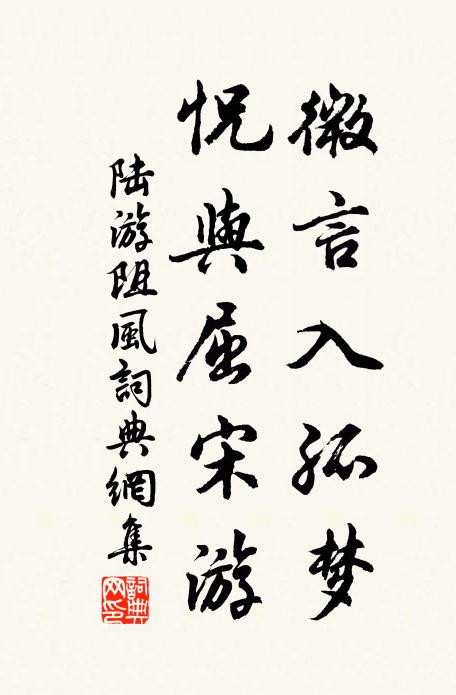 微言入孤梦
怳與屈宋游
陆游阻風詞典網集
詞典网印